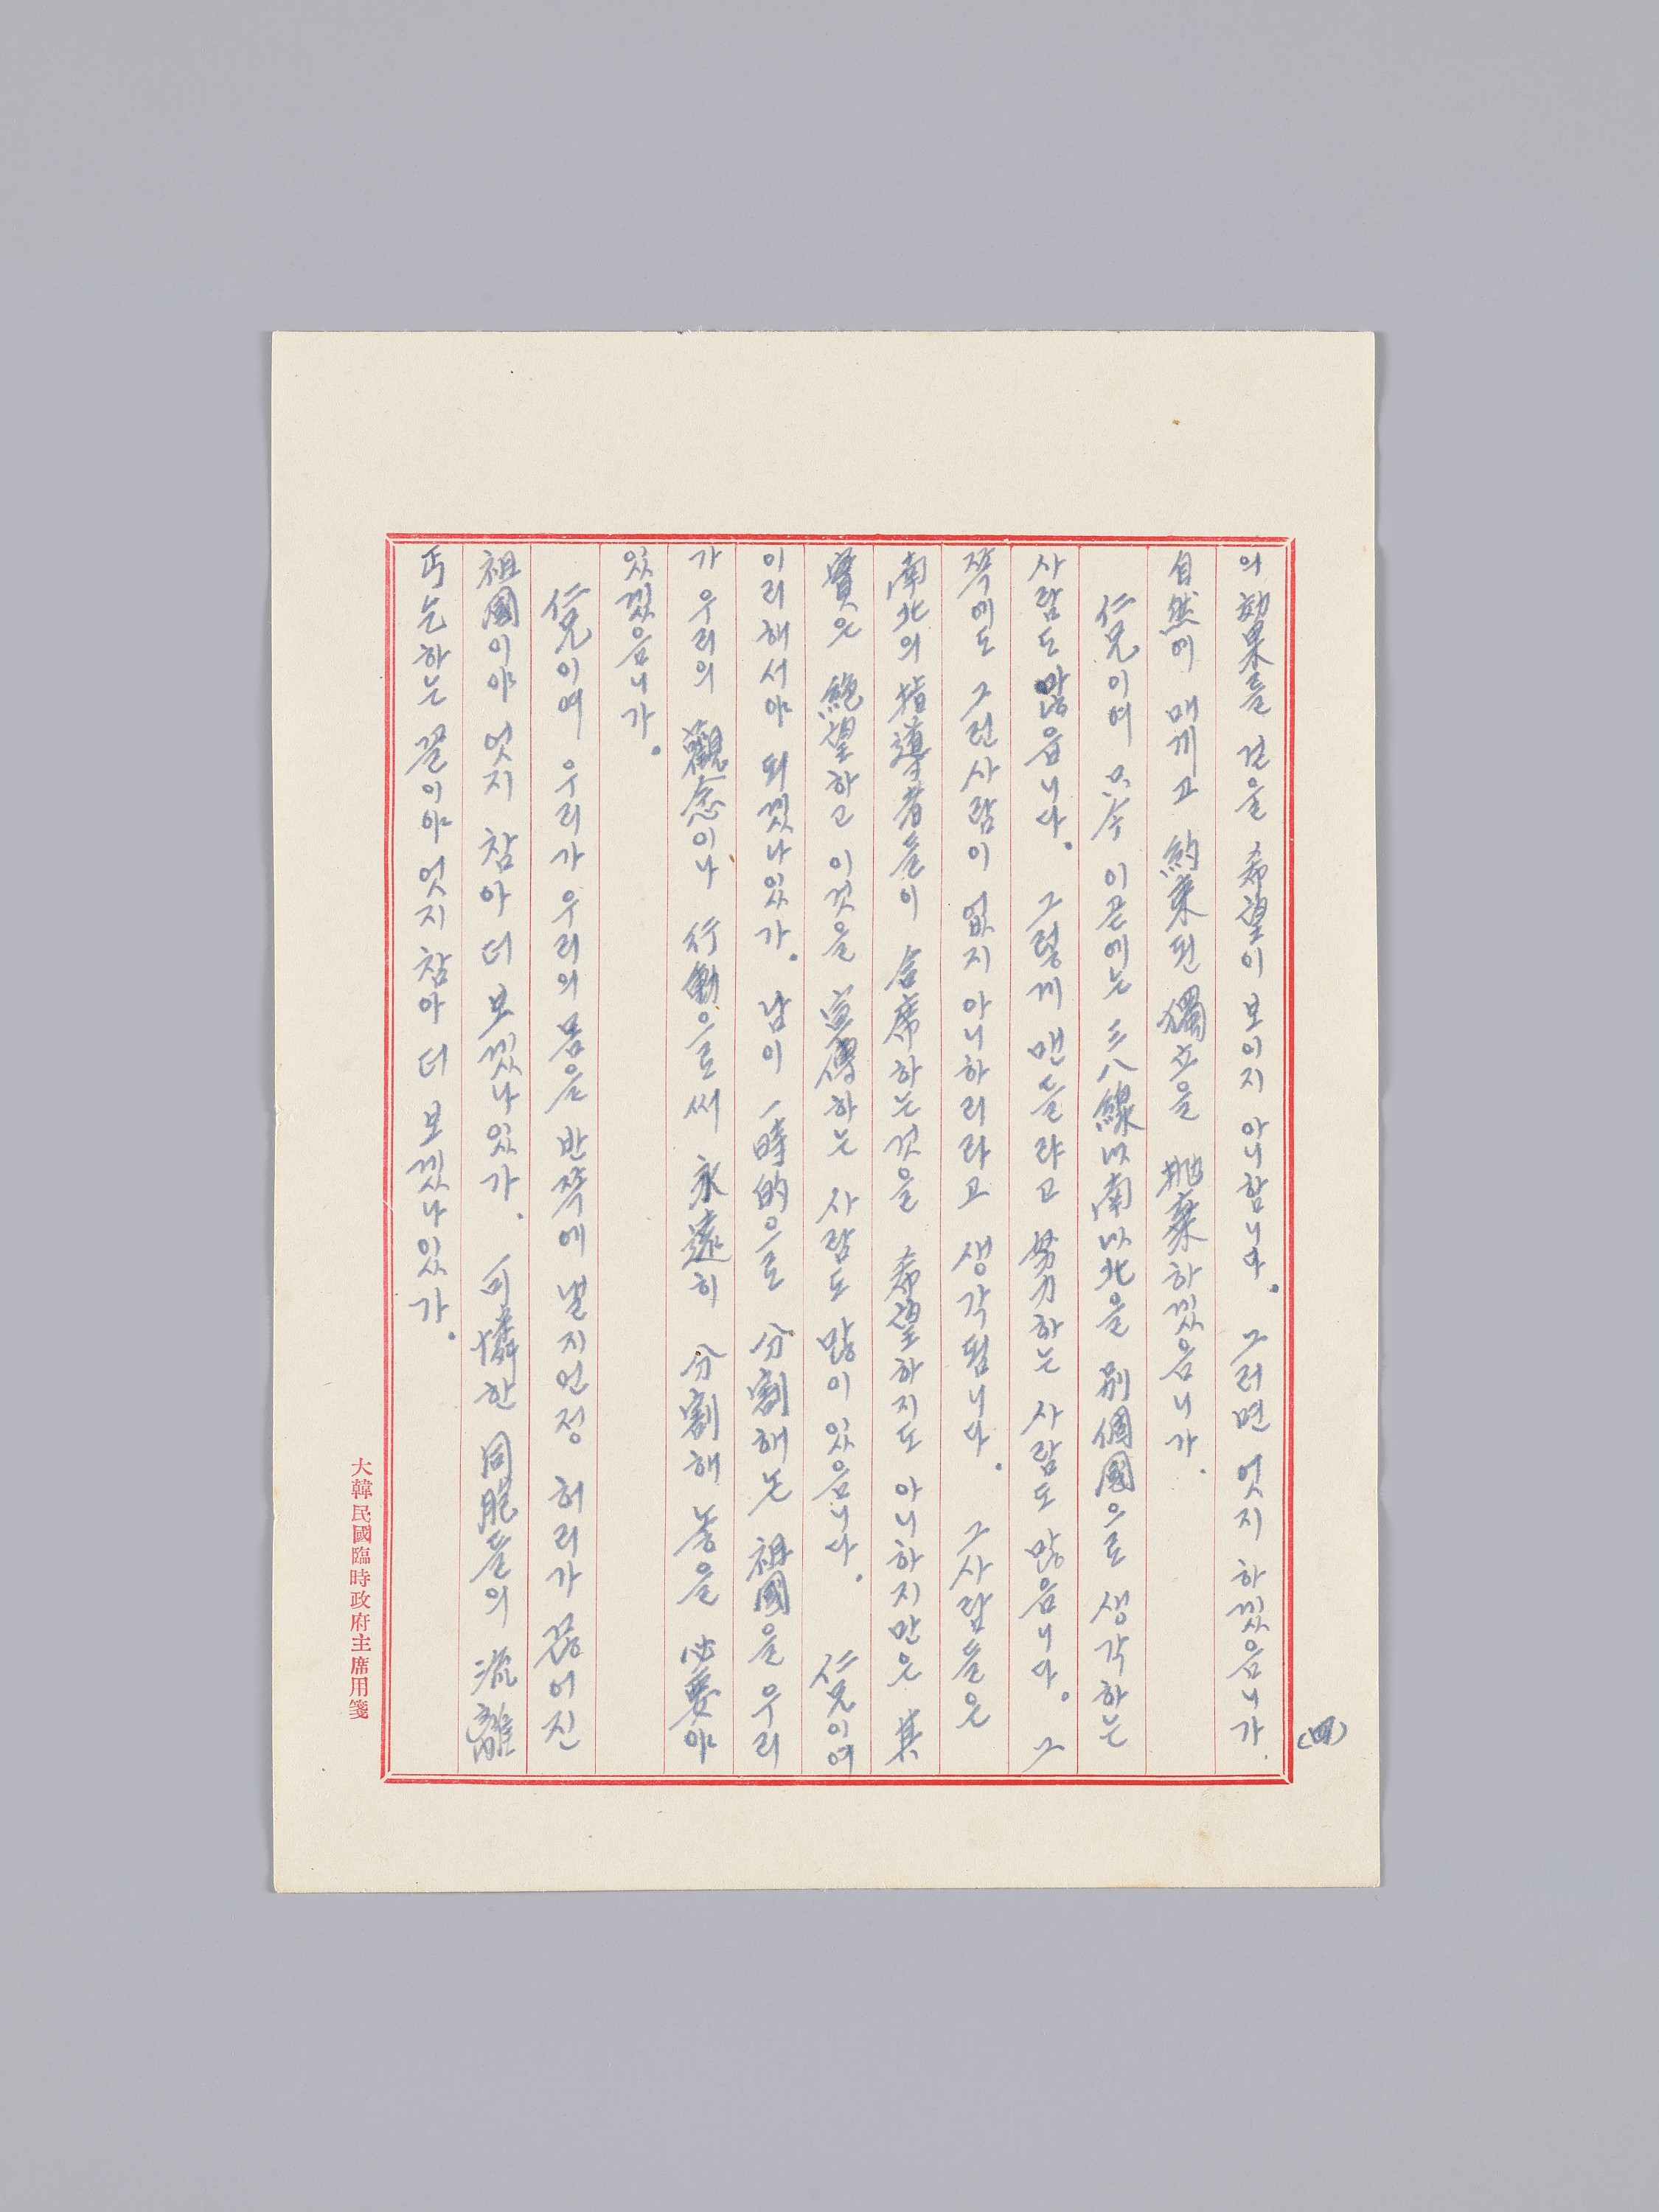 (四)
의 効果를 걷을 希望이 보이지 아니함니다. 그러면 엇지 하겠음니가.
自然에 매끼고 約束된 獨立을 抛棄하겠음니가.
仁兄이여 只今 이곧에는 三八線以南以北을 別個國으로 생각하는
사람도 많읍니다. 그렇게 맨들랴고 努力하는 사람도 많음니다. 그
쪽에도 그런사람이 없지 아니하리라고 생각됩니다. 그사람들은
南北의 指導者들이 合席하는것을 希望하지도 아니하지만은 其
實은 絶望하고 이것을 宣傳하는 사람도 많이 있음니다. 仁兄이여
이리해서야 되겠나잇가. 남이 一時的으로 分割해논 祖國을 우리
가 우리의 觀念이나 行動으로써 永遠히 分割해 놓을 必要야
있겠음니가.
仁兄이여 우리가 우리의 몸을 반쪽에 낼지언정 허리가 끊어진
祖國이야 엇지 참아 더 보겠나잇가. 可憐한 同胞들의 流離
丐乞하는 꼴이야 엇지 참아 더 보겠나잇가.
大韓民國臨時政府主席用箋